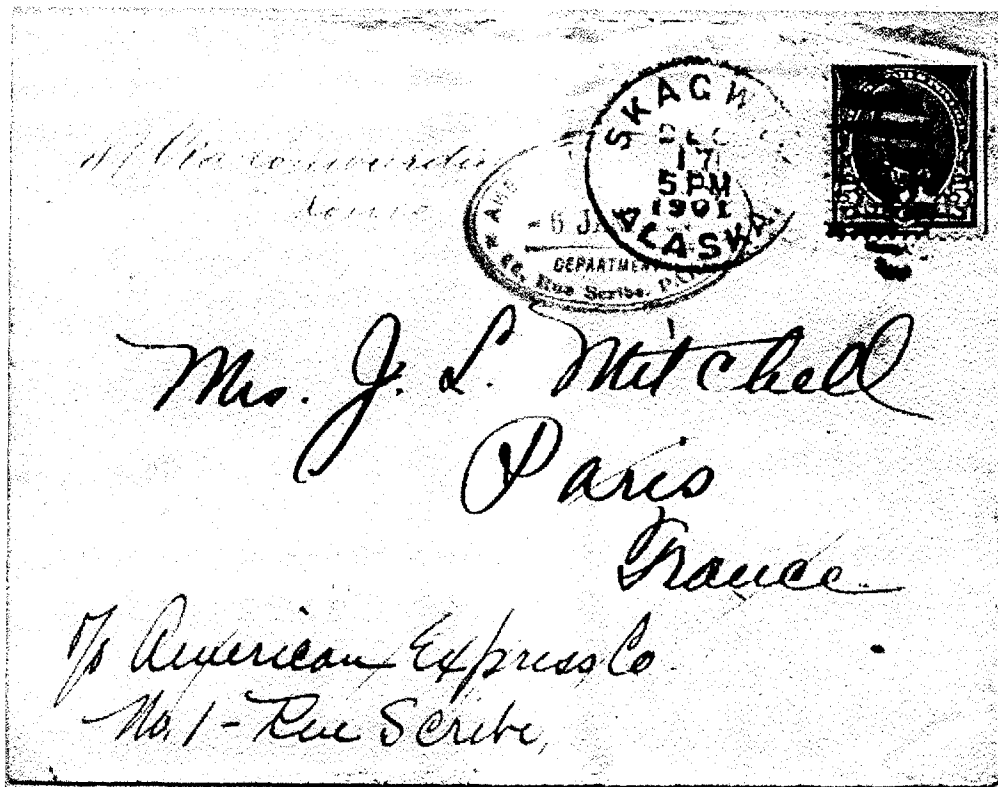 SKAGW
DEC
17
5 PM
1901
ALASKA.
- 6 JA
DEPARTMEN
Rue Scribe, PA
5 5
Mrs. J. L. Mitchell
Paris
France
c/o American Express Co.
No. 1 - Rue Scribe,